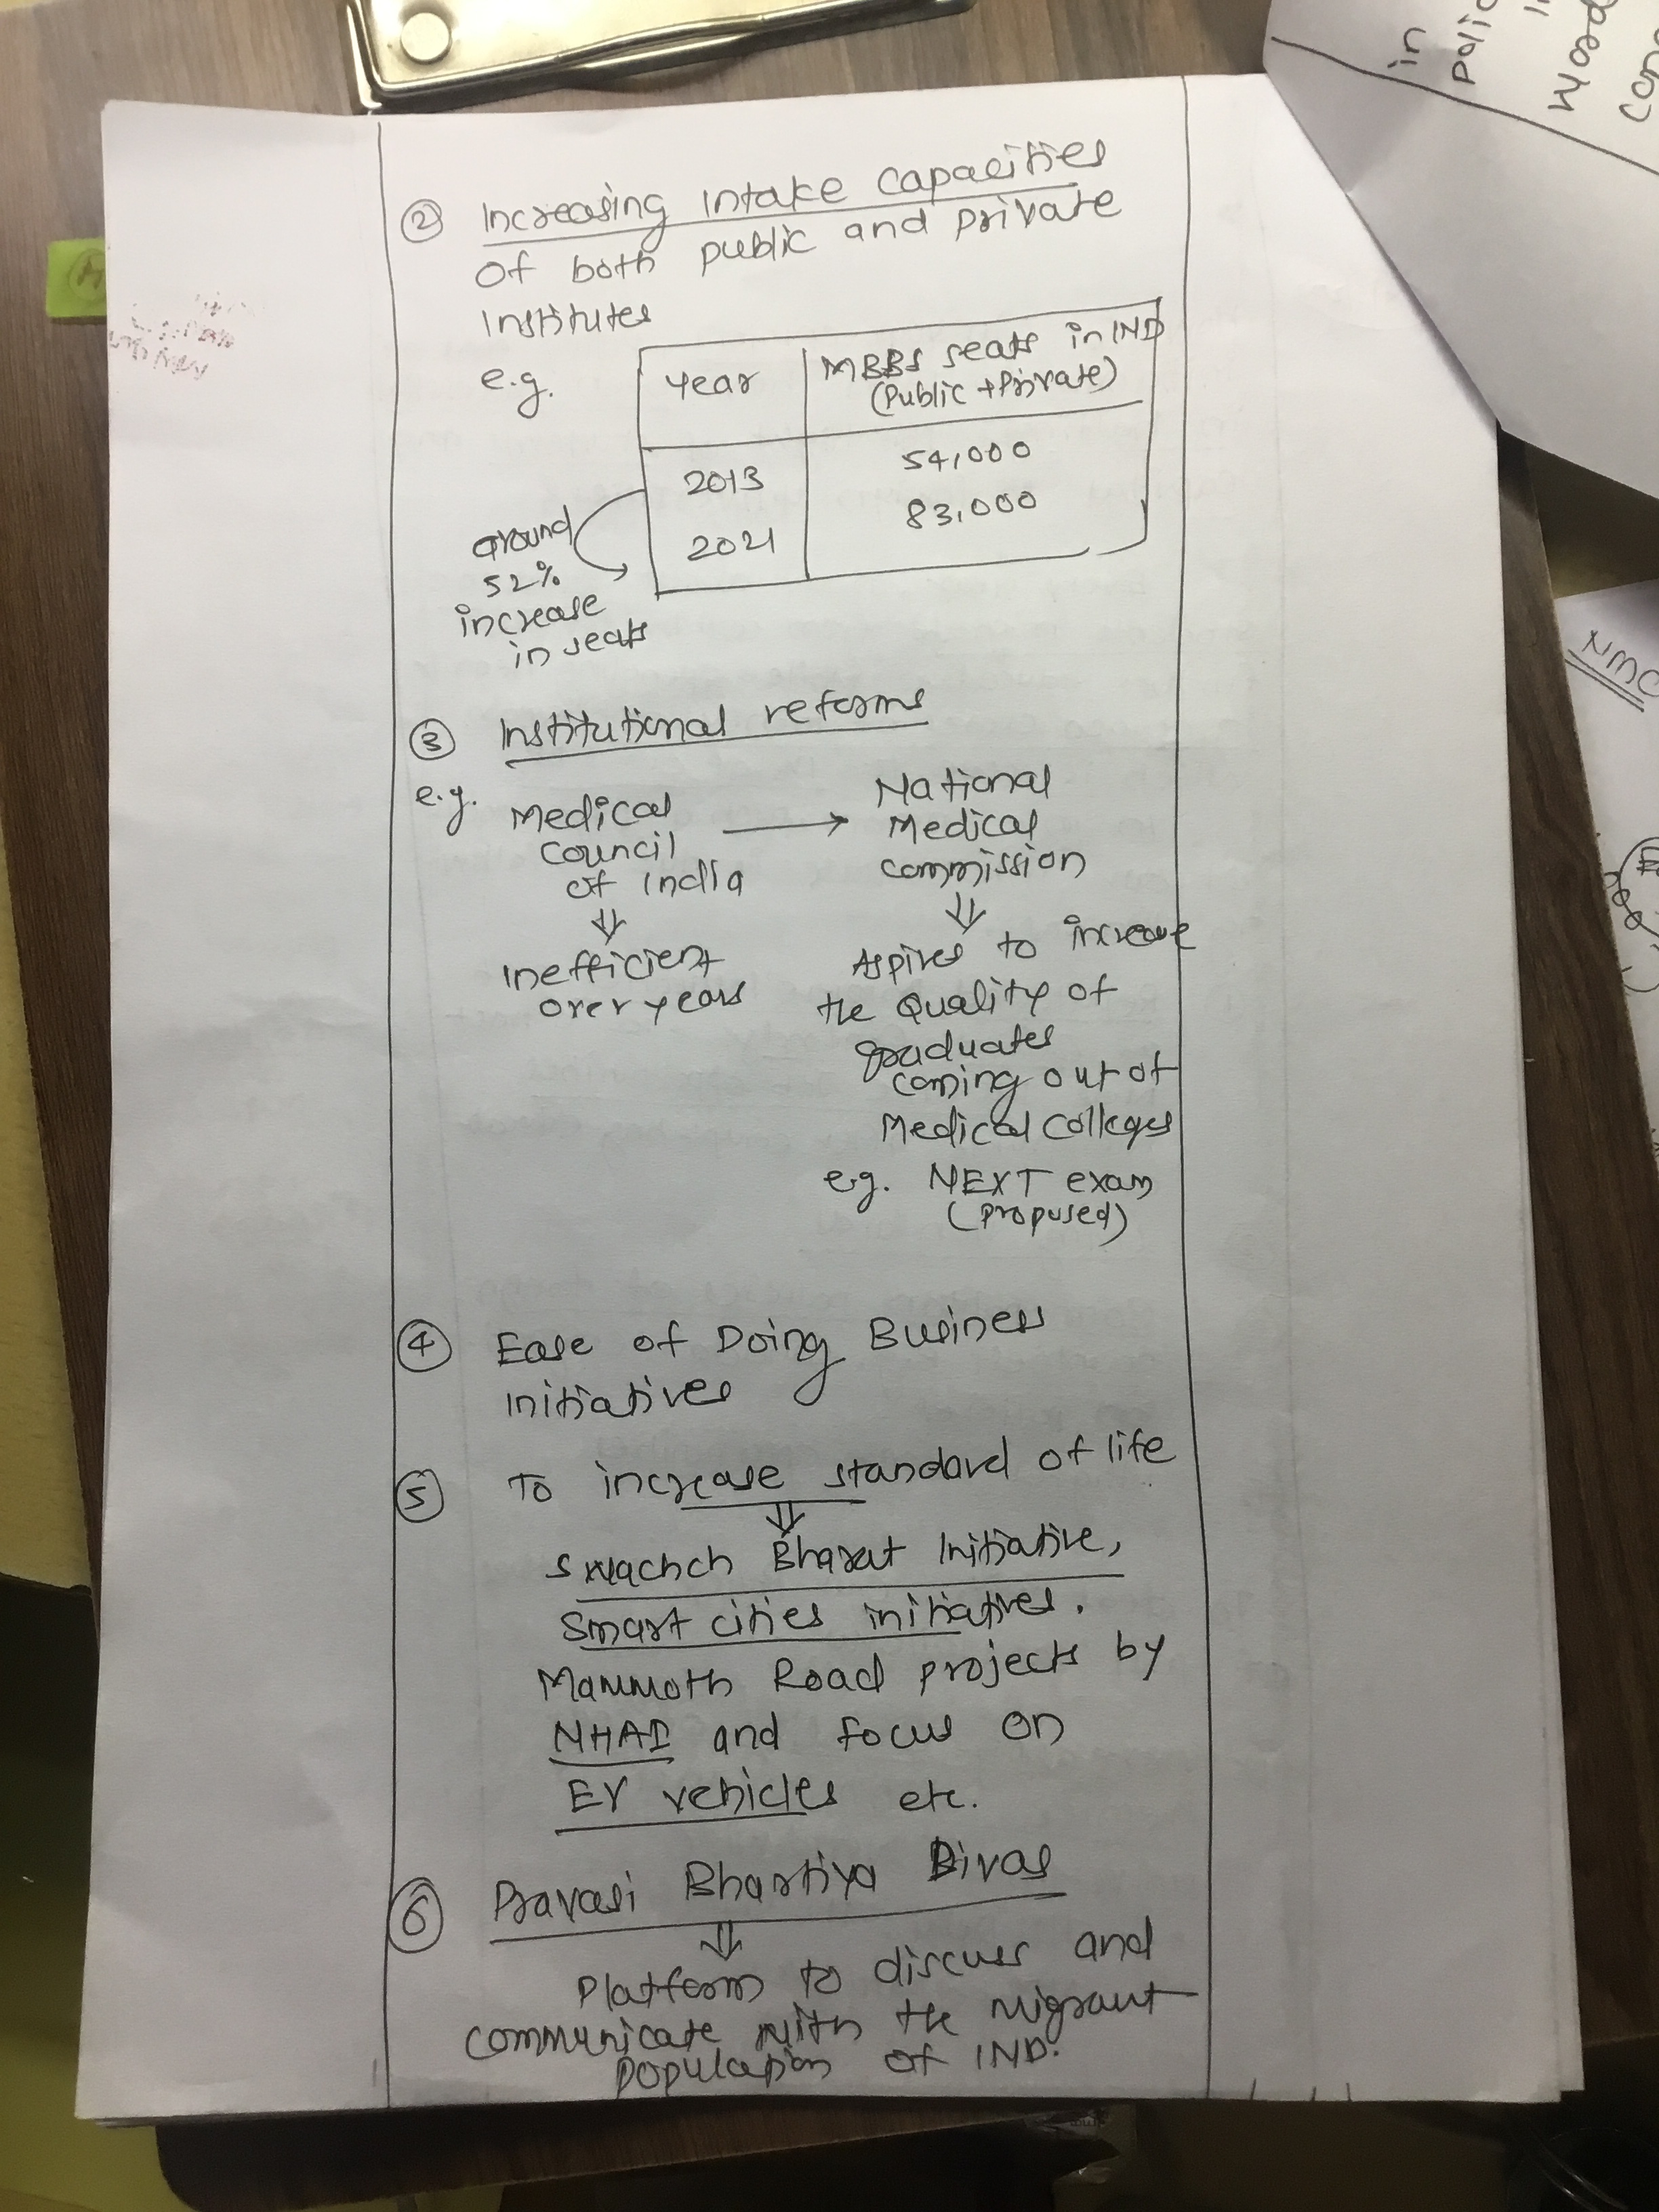 ② Increasing intake capacities
of both public and private
institutes
e.g.
Year | MBBS seats in IND
(Public + Private)
2013 54,000
2021 83,000
around
52%
increase
in seats
③ Institutional reforms
e.g. Medical
council
of India
⇓
Inefficient
over years
→
National
Medical
commission
⇓
Aspires to increase
the Quality of
graduates
coming out of
Medical Colleges
e.g. NEXT exam
(proposed)
④ Ease of Doing Business
initiatives
⑤ To increase standard of life
⇓
Swachch Bharat Initiative,
Smart cities initiatives.
Mammoth Road projects by
NHAI and focus on
EV vehicles etc.
⑥ Pravasi Bhartiya Divas
⇓
Platform to discuss and
communicate with the migrant
population of IND.
in
NMC